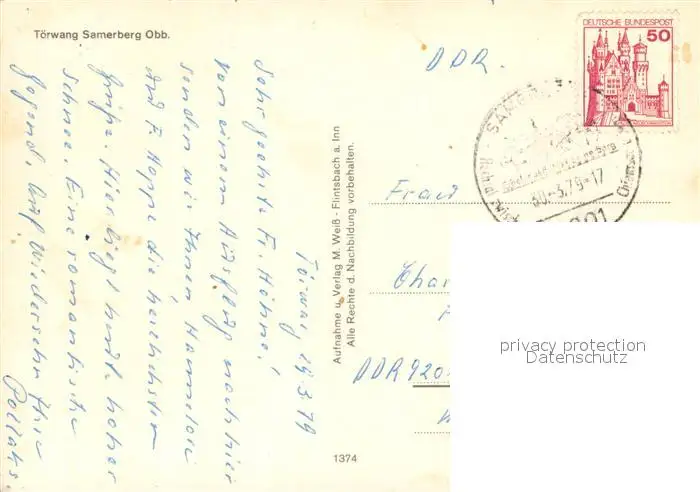 Törwang Samerberg Obb.
DEUTSCHE BUNDESPOST
50
DDR.
SAMERB
30.-3.79-17
Törwang, 29.3.79
Sehr geehrte Fr. Höhne!
Von einem Ausflug nach hier
senden wir Ihnen
und F. Hoppe die herzlichsten
Grüße. Hier liegt heute hoher
Schnee. Eine romantische
Gegend. Auf Wiedersehn Ihre
Pollaks
Aufnahme u. Verlag M. Weiß - Flintsbach a. Inn
Alle Rechte d. Nachbildung vorbehalten.
1374
Frau
Char
DDR 920
privacy protection
Datenschutz